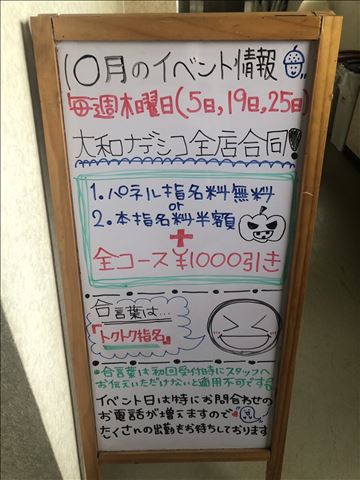 10月のイベント情報
毎週木曜日(5日,19日,25日)
大和ナデシコ全店合同!
1.パネル指名料無料
or
2.本指名料半額
+
全コース¥1000引き
合言葉は…
『トクトク指名』
合言葉は初回受付時にスタッフへ
お伝えいただけないと適用不可です
イベント日は特にお問合わせの
お電話が増えますので
たくさんの出勤をお待ちしております